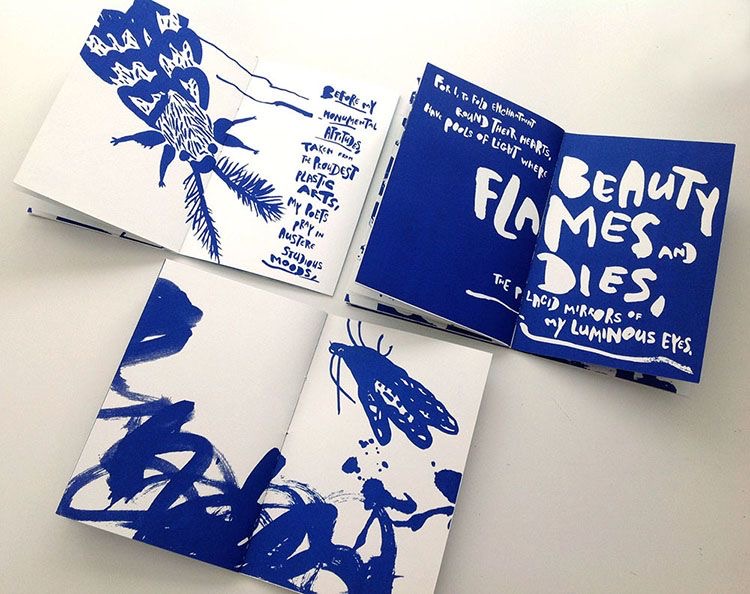 BEFORE MY
MONUMENTAL
ATTITUDES,
TAKEN FROM
THE PROUDEST
PLASTIC
ARTS,
MY POETS
PRAY IN
AUSTERE
STUDIOUS
MOODS,
FOR I, TO FOLD ENCHANTMENT
ROUND THEIR HEARTS,
HAVE POOLS OF LIGHT WHERE
BEAUTY
FLAMES AND
DIES,
THE PLACID MIRRORS OF
MY LUMINOUS EYES.